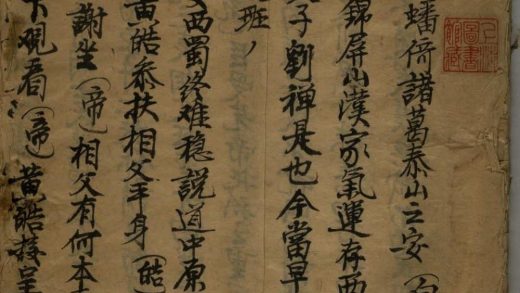 蟠倚諸葛泰山之安（白
錦屏山漢家氣運存西
子劉禅是也今當早
班
西蜀终难稳説道中原
黄皓叅扶相父平身（皓
謝坐（帝）相父有何本
下观看（帝）黄皓接呈